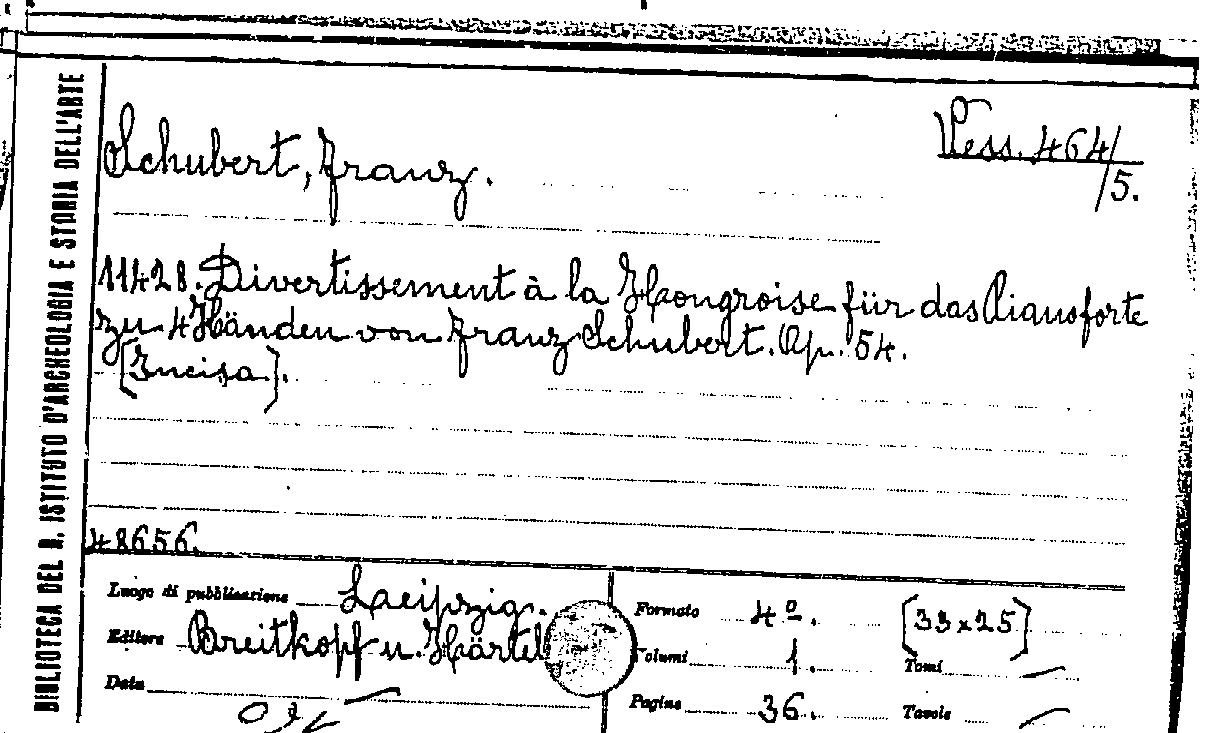 BIBLIOTECA DEL R. ISTITUTO D'ARCHEOLOGIA E STORIA DELL'ARTE
Schubert, Franz.
Vess. 464/
/5.
11428. Divertissement à la Hongroise für das Pianoforte
zu 4 Händen von Franz Schubert. Op. 54.
[Incisa].
48656.
Luogo di pubblicazione Laeipzig.
Editore Breitkopf u. Härtel
Data
Formato 4º. [33x25]
Volumi 1. Tomi
Pagine 36. Tavole